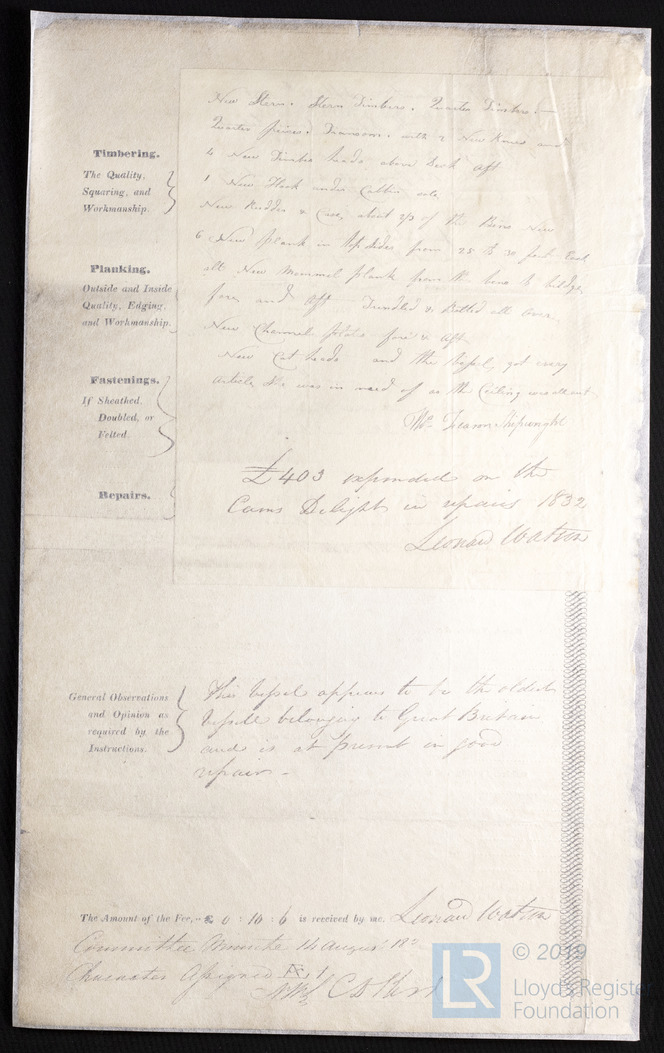 New Stern. Stern Timbers. Quarter Timbers.
Quarter pieces. Transoms. with 2 New Knees and
Timbering.
4 New Timber heads above Deck aft
The Quality,
Squaring, and
Workmanship.
1 New Hook under Cabbin sole
New Rudder & Case, about 2/3 of the New
6 New plank in topsides from 25 to 30 feet
Planking.
Outside and Inside
Quality, Edging,
and Workmanship.
New plank from the to bildge
fore and aft & Bolted all over
New Channel fore & Aft
New Cat heads and the Vessel got every
Fastenings.
If Sheathed.
Doubled, or
Felted.
Article She was in need of as the Ceiling
Shipwright
£403 expended on the
Repairs.
Cams Delight in repairs 1832
Leonard Watson
General Observations
and Opinion as
required by the
Instructions.
This Vessel appears to be the oldest
belonging to Great Britain
and is at present in good
repair -
The Amount of the Fee, £ 0 : 10 : 6 is received by me. Leonard Watson
Committee Minute 14 August
Character Assigned
LR
© 2019
Lloyd's Register
Foundation